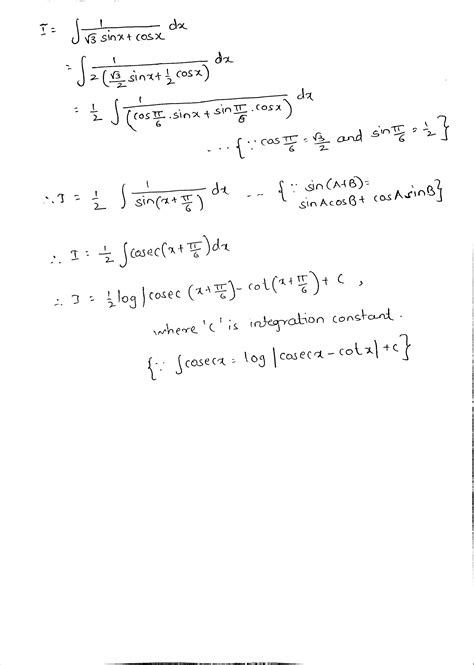 I = ∫ 1/(√3 sinx + cosx) dx
= ∫ 1/(2(√3/2 sinx + 1/2 cosx)) dx
= 1/2 ∫ 1/(cos π/6 . sinx + sin π/6 . cosx) dx
... {∵ cos π/6 = √3/2 and sin π/6 = 1/2}
∴ I = 1/2 ∫ 1/sin(x + π/6) dx ... {∵ sin(A+B) =
sinAcosB + cosAsinB}
∴ I = 1/2 ∫ cosec(x + π/6) dx
∴ I = 1/2 log|cosec (x + π/6) - cot(x + π/6) + C ,
where 'C' is integration constant.
{∵ ∫cosecx = log|cosecx - cotx| + C}